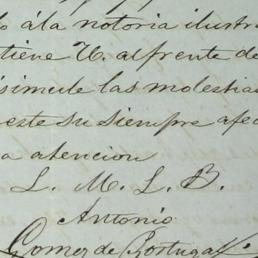 o á la notoria ilustra
tiene U. al frente de
isimule las molestia
este su siempre afec
a atencion
L. M. L. B.
Antonio
Gomez de Portugal